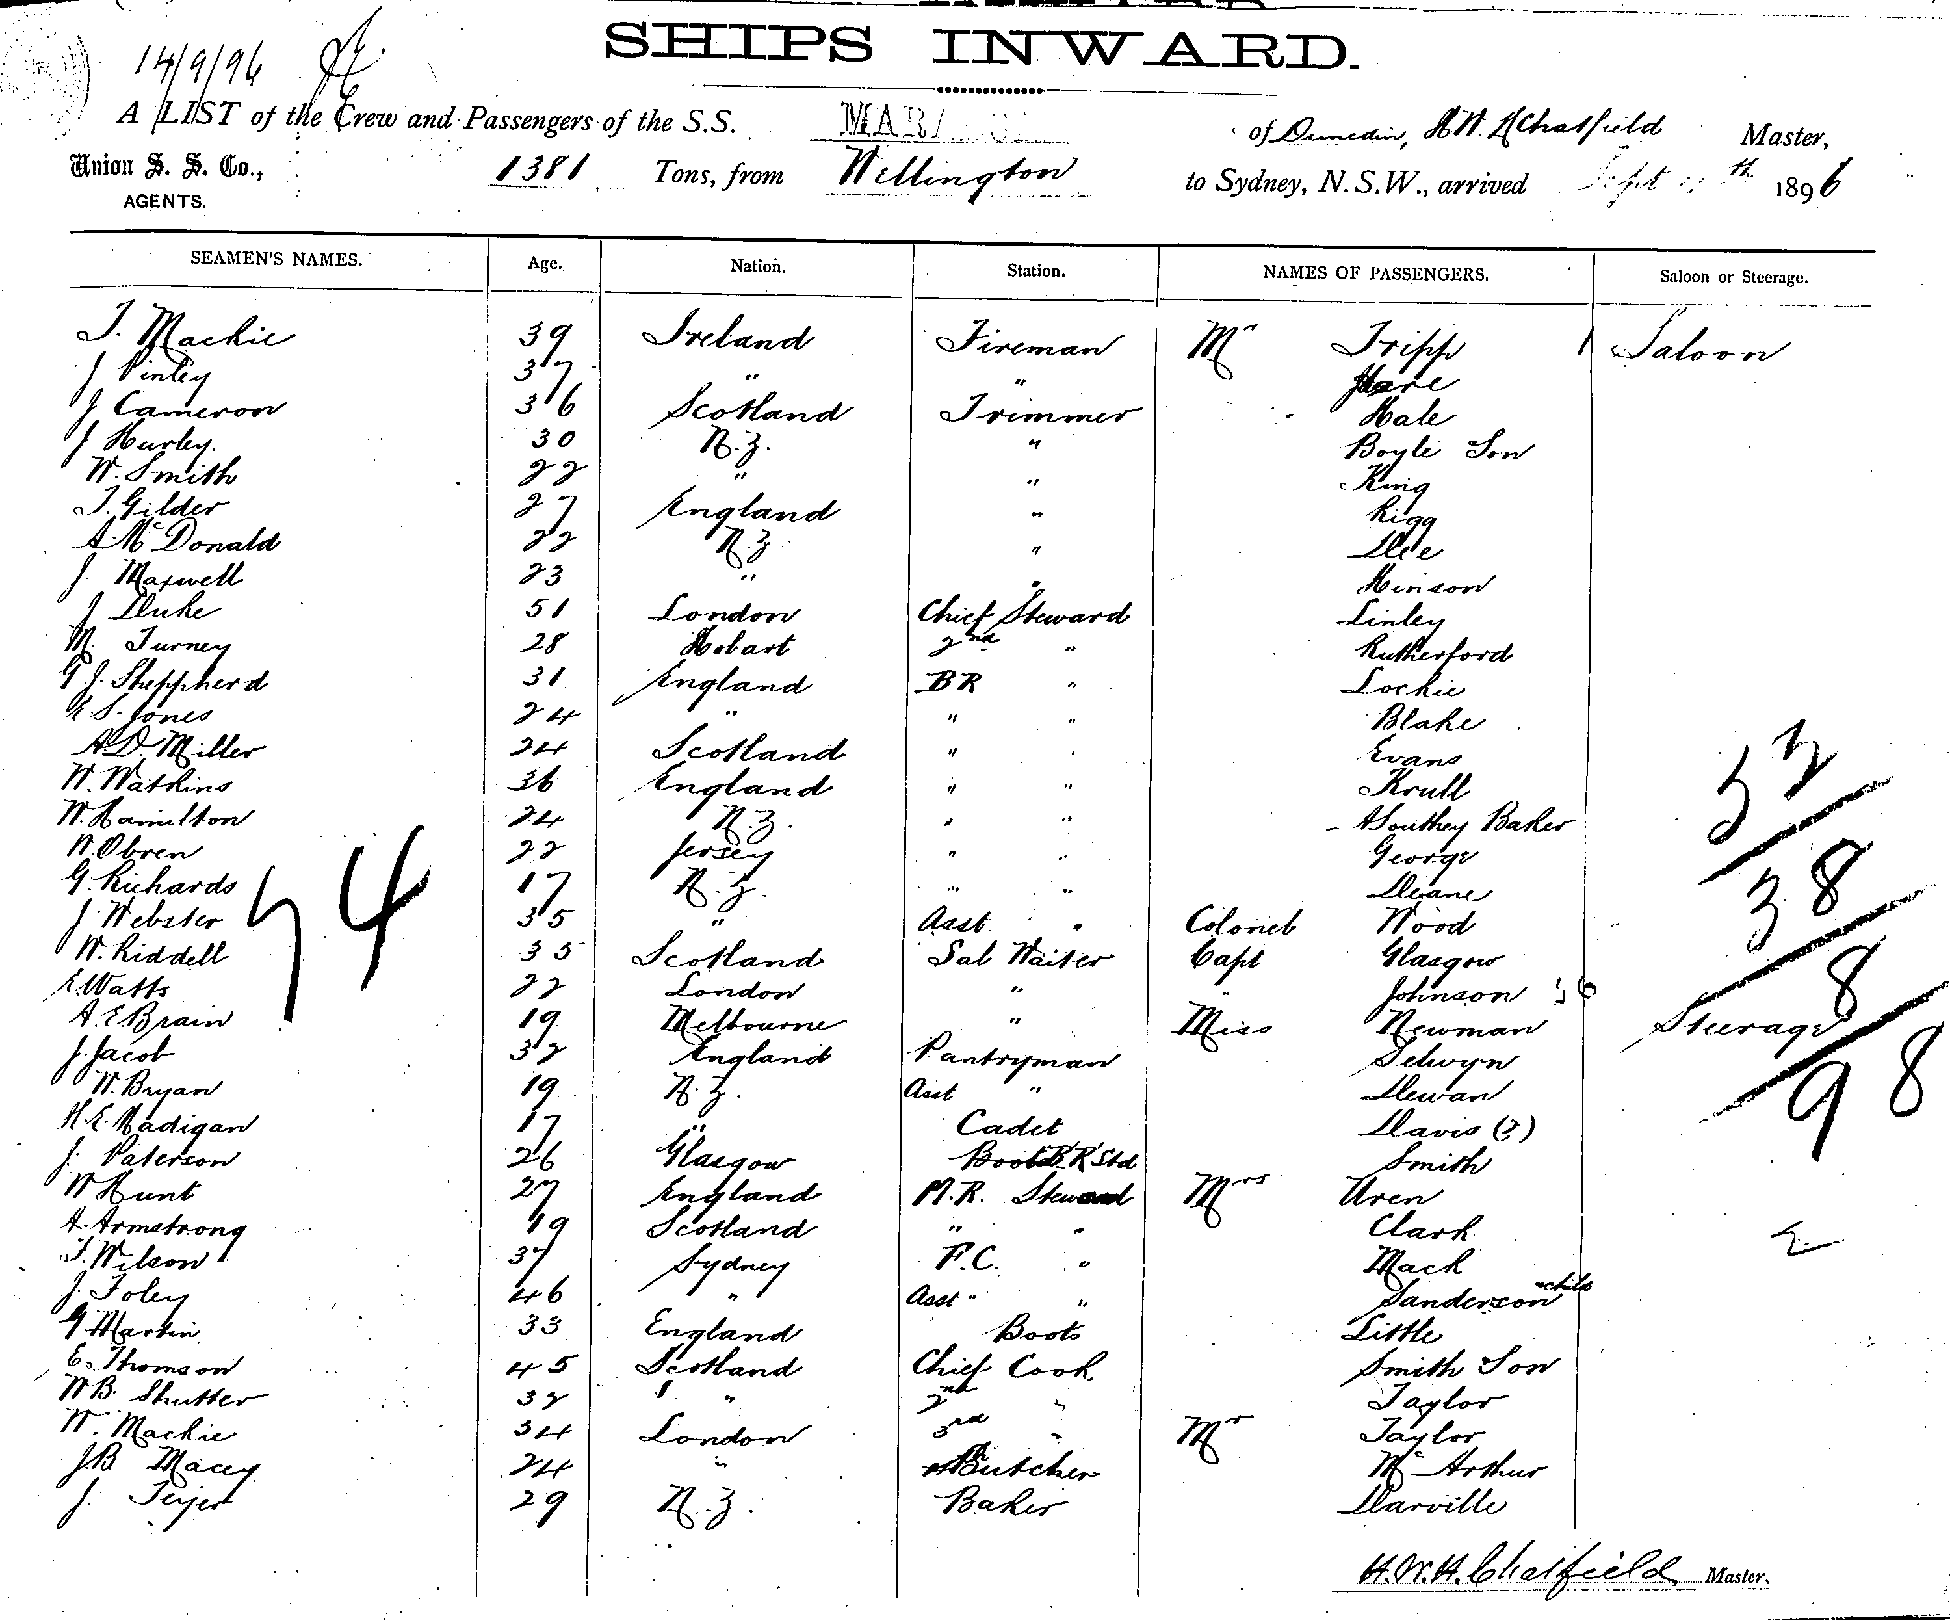 SHIPS INWARD.
14/9/96
A LIST of the Crew and Passengers of the S.S. of Dunedin, H.W.H Chatfield Master,
Union S. S. Co., 1381 Tons, from Wellington to Sydney, N.S.W., arrived Sept th 1896
AGENTS.
SEAMEN'S NAMES. Age. Nation. Station. NAMES OF PASSENGERS. Saloon or Steerage.
T. Mackie 39 Ireland Fireman Mr Tripp 1 Saloon
J Finley 37 " "
J Cameron 36 Scotland Trimmer Hale
J Hurley. 30 N.Z. " Boyle Son
W. Smith 22 " " King
T. Gilder 27 England " Rigg
A McDonald 22 N.Z. "
J. Maxwell 23 " " Hinson
J Duke 51 London Chief Steward Linley
M. Turney 28 Hobart 2nd " Rutherford
G J. Sheppherd 31 England BR " Lockie
E S. Jones 24 " " " Blake
A D. Miller 24 Scotland " Evans
W. Watkins 36 England " " Krull
W. Hamilton 24 N.Z. " " A Southey Baker
W. Obren 22 Jersey " " George
G. Richards 17 N.Z. " " Deane
J. Webster 35 " Asst " Colonel Wood
W. Riddell 35 Scotland Sal Waiter Capt Glasgow
E. Watts 22 London " " Johnson 36
A. E Brain 19 Melbourne " Miss Newman Steerage
J. Jacob 32 England Pantryman Selwyn
W. Bryan 19 N.Z. Asst " Dewan
H. E. Madigan 17 " Cadet Davis (2)
J. Paterson 26 Glasgow Boots B R Std Smith
W Hunt 27 England M.R. Steward Mrs Uren
A. Armstrong 19 Scotland " " Clark
T. Wilson 37 Sydney F.C. " Mack
J. Foley 46 " Asst " " Sanderson child
G Martin 33 England Boots Little
E. Thomson 45 Scotland Chief Cook Smith Son
W B. Shutter 32 " 2nd " Taylor
W. Mackie 34 London 3rd " Mr Taylor
J B Macey 24 " Butcher McArthur
J. 29 N.Z. Baker Darville
74
52
38
8
98
H.W.H. Chatfield Master.